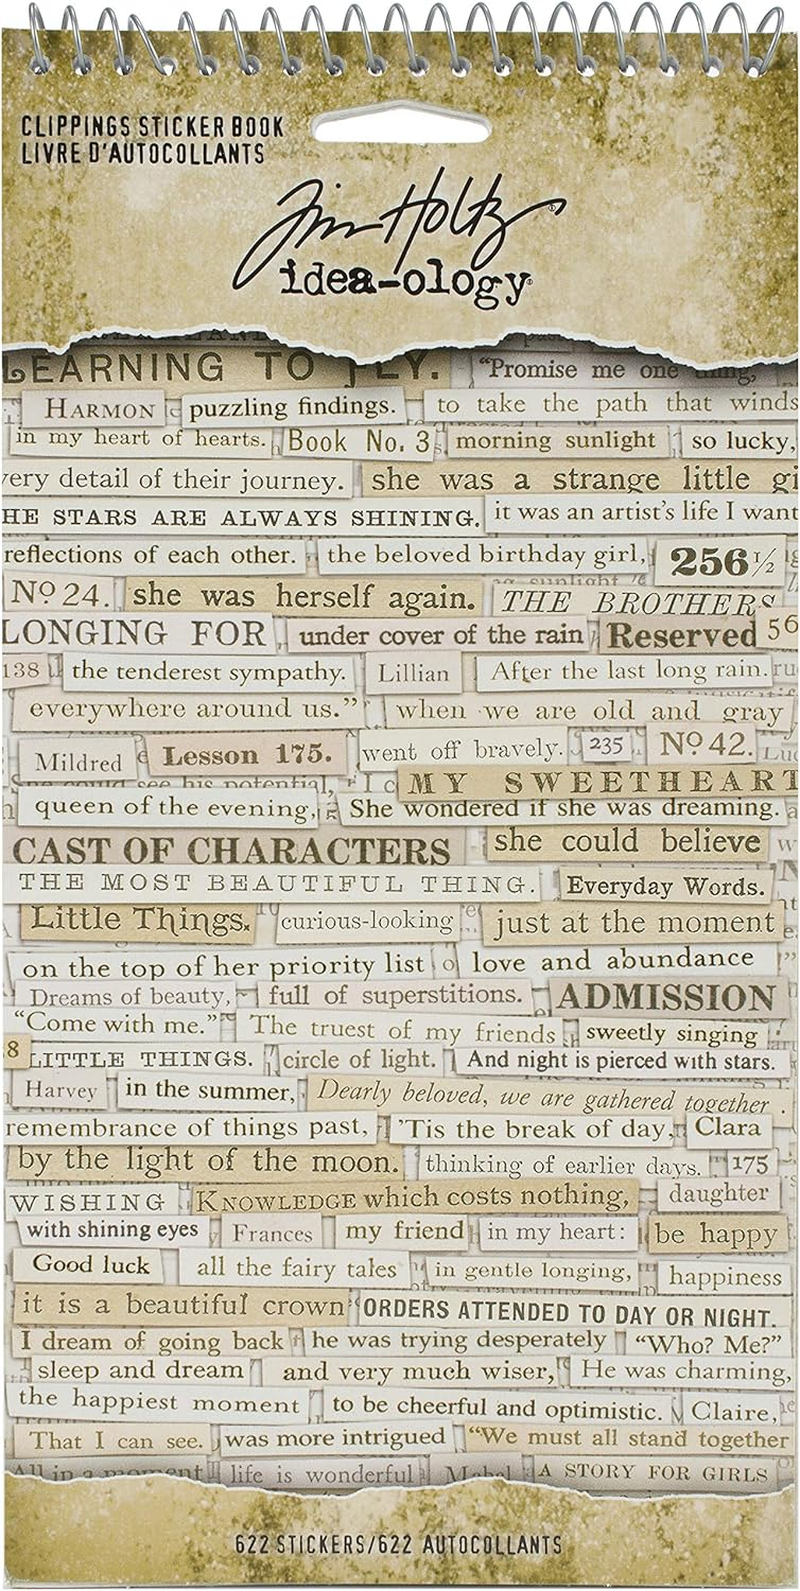 CLIPPINGS STICKER BOOK
LIVRE D'AUTOCOLLANTS
Tim Holtz®
idea-ology®
LEARNING TO FLY. "Promise me one thing,"
HARMON puzzling findings. to take the path that winds
in my heart of hearts. Book No. 3 morning sunlight so lucky,
very detail of their journey. she was a strange little gi
HE STARS ARE ALWAYS SHINING. it was an artist's life I want
reflections of each other. the beloved birthday girl, 256½
No 24. she was herself again. THE BROTHERS
LONGING FOR under cover of the rain Reserved 56
138 the tenderest sympathy. Lillian After the last long rain.
everywhere around us." when we are old and gray
Mildred Lesson 175. went off bravely. 235 No 42.
see his potential, I MY SWEETHEART
queen of the evening, She wondered if she was dreaming.
CAST OF CHARACTERS she could believe
THE MOST BEAUTIFUL THING. Everyday Words.
Little Things. curious-looking just at the moment
on the top of her priority list love and abundance
Dreams of beauty, full of superstitions. ADMISSION
"Come with me." The truest of my friends sweetly singing
8 LITTLE THINGS. circle of light. And night is pierced with stars.
Harvey in the summer, Dearly beloved, we are gathered together
remembrance of things past, 'Tis the break of day, Clara
by the light of the moon. thinking of earlier days. 175
WISHING KNOWLEDGE which costs nothing, daughter
with shining eyes Frances my friend in my heart: be happy
Good luck all the fairy tales in gentle longing, happiness
it is a beautiful crown ORDERS ATTENDED TO DAY OR NIGHT.
I dream of going back he was trying desperately "Who? Me?"
sleep and dream and very much wiser, He was charming,
the happiest moment to be cheerful and optimistic. Claire,
That I can see. was more intrigued "We must all stand together
All in a moment life is wonderful Mabel A STORY FOR GIRLS
622 STICKERS/622 AUTOCOLLANTS